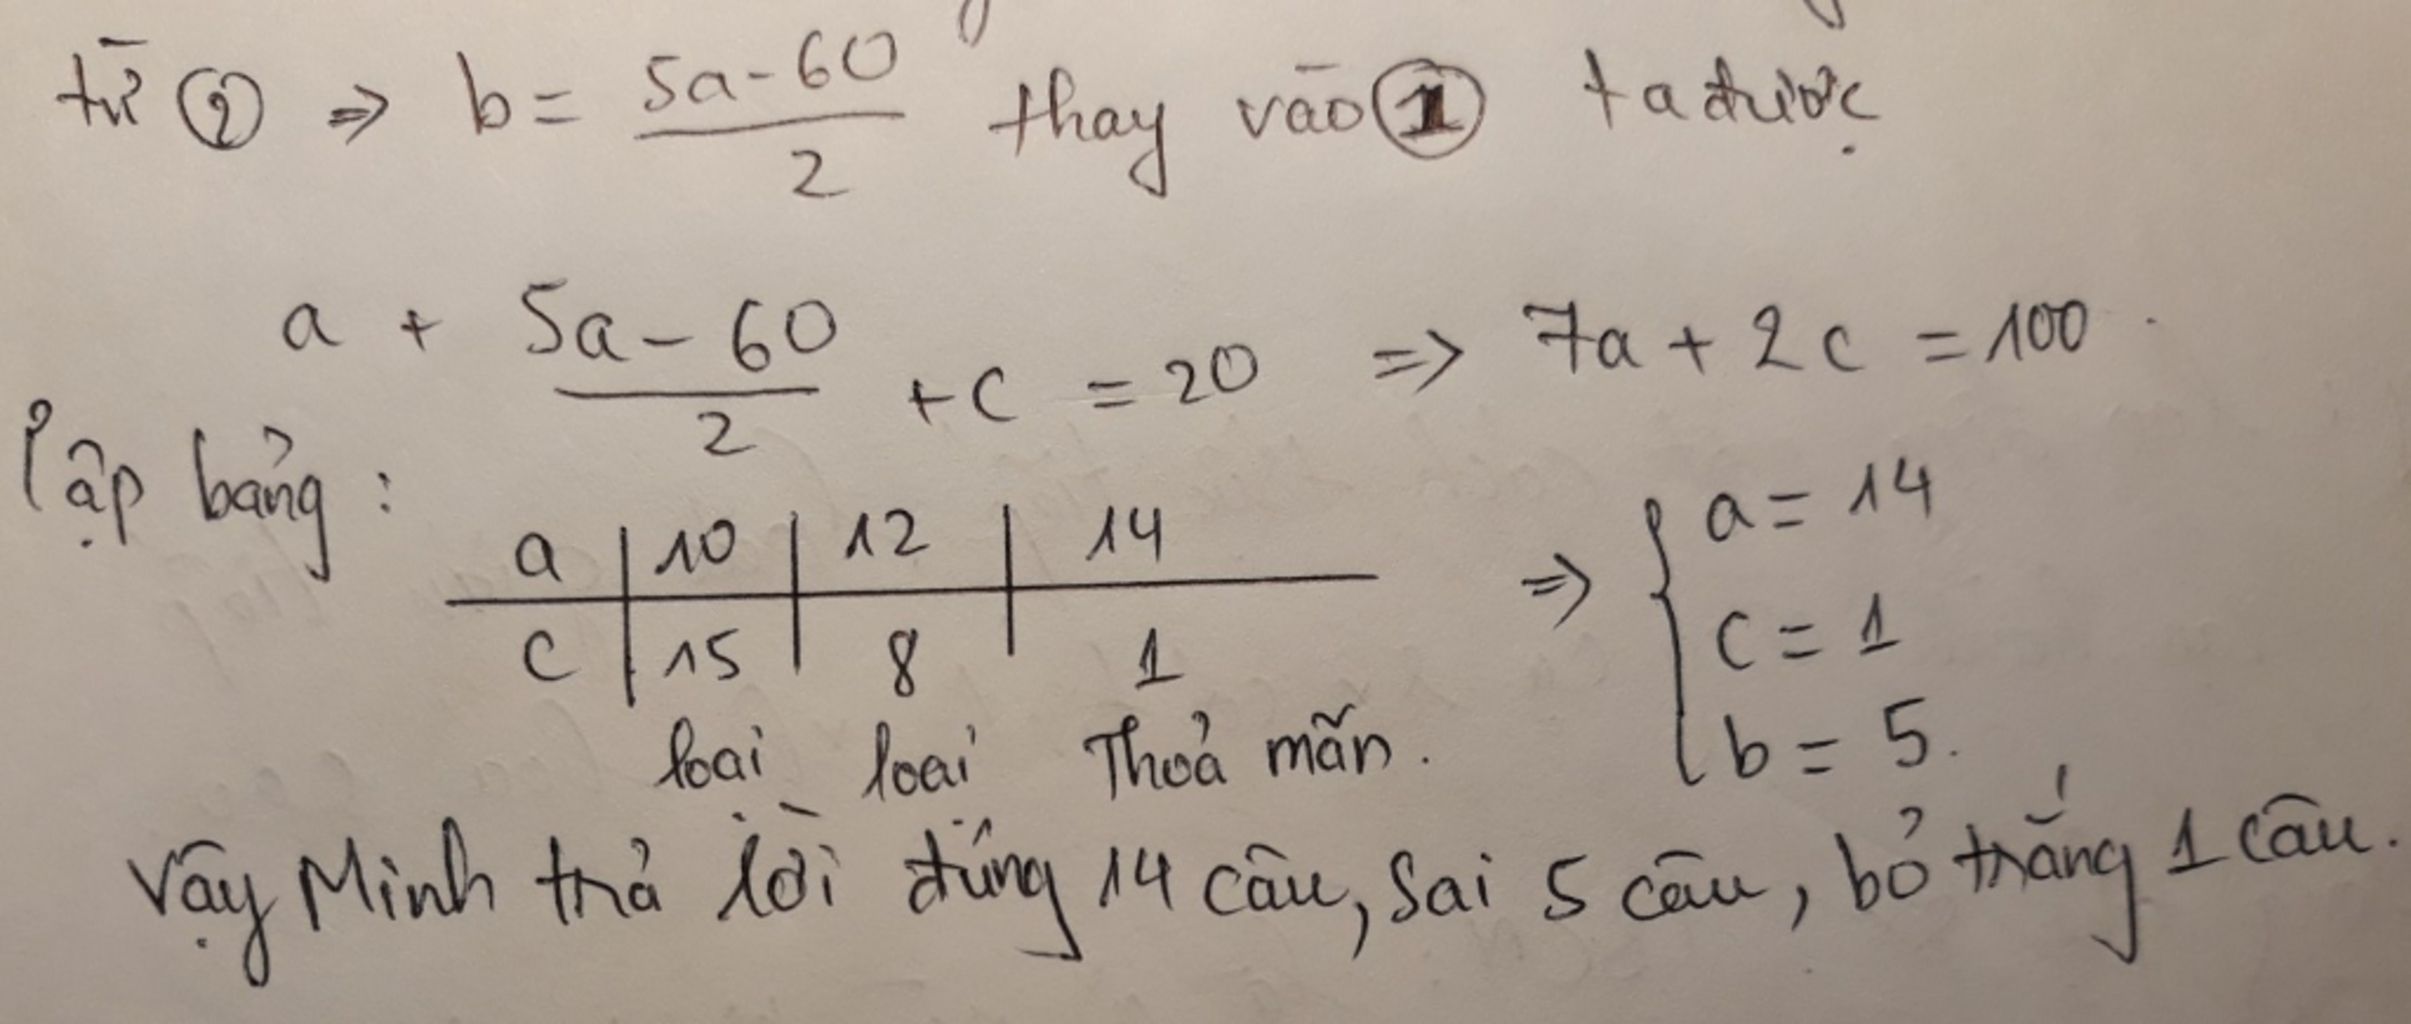 từ ② => b = (5a-60)/2 thay vào ① ta được
a + (5a-60)/2 + c = 20 => 7a + 2c = 100.
lập bảng:
a | 10 | 12 | 14
c | 15 | 8 | 1
loại loại Thoả mãn.
=> { a = 14
c = 1
b = 5.
Vậy Minh trả lời đúng 14 câu, sai 5 câu, bỏ trắng 1 câu.